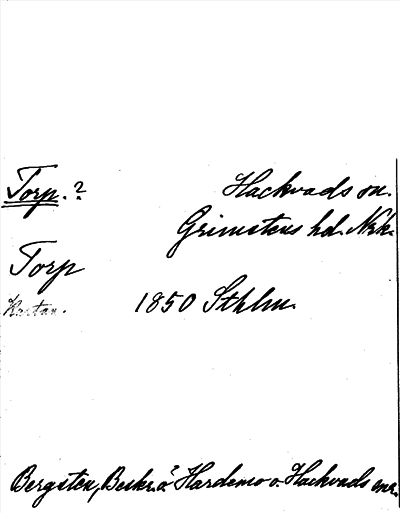 Torp. ? Hackvads sn.
Grimstens hd. Nrk.
Torp
Kartan. 1850 Sthlm.
Bergsten, Beskr. ö. Hardemo o. Hackvads snr.